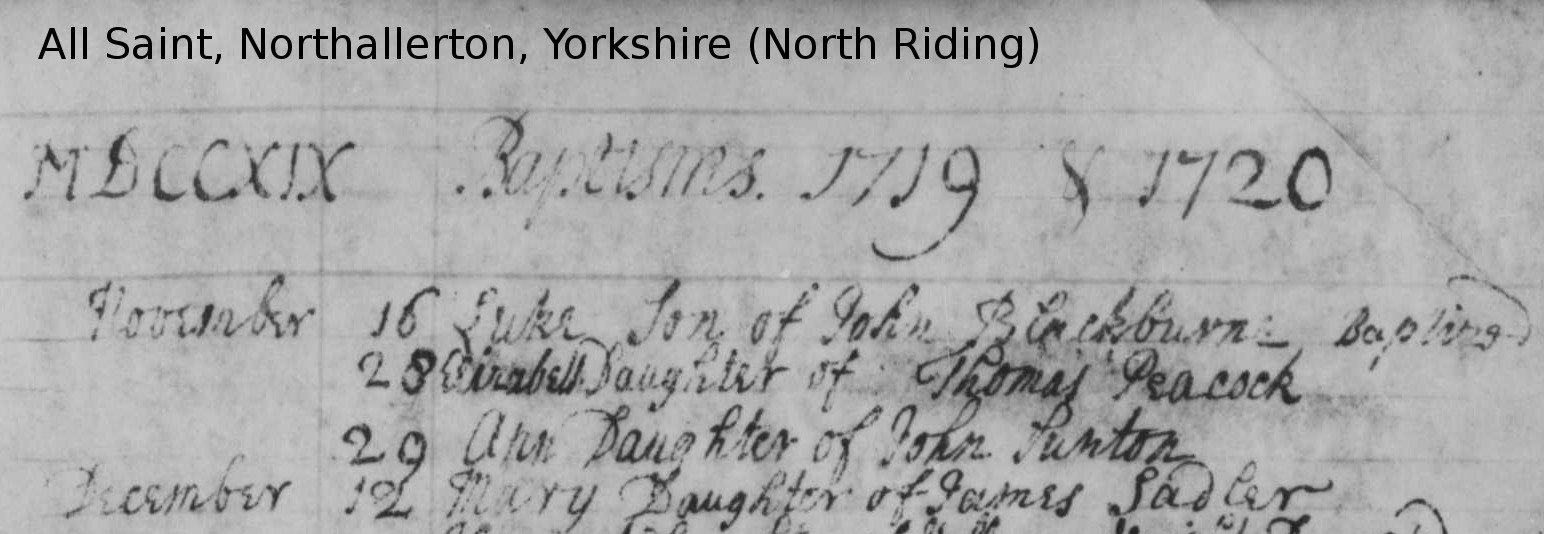 All Saint, Northallerton, Yorkshire (North Riding)
MDCCXIX Baptisms. 1719 & 1720
November 16 Luke Son of John Blackburne Baptized
28 Daughter of Thomas Peacock
29 Ann Daughter of John Sunton
December 12 Mary Daughter of James Sadler